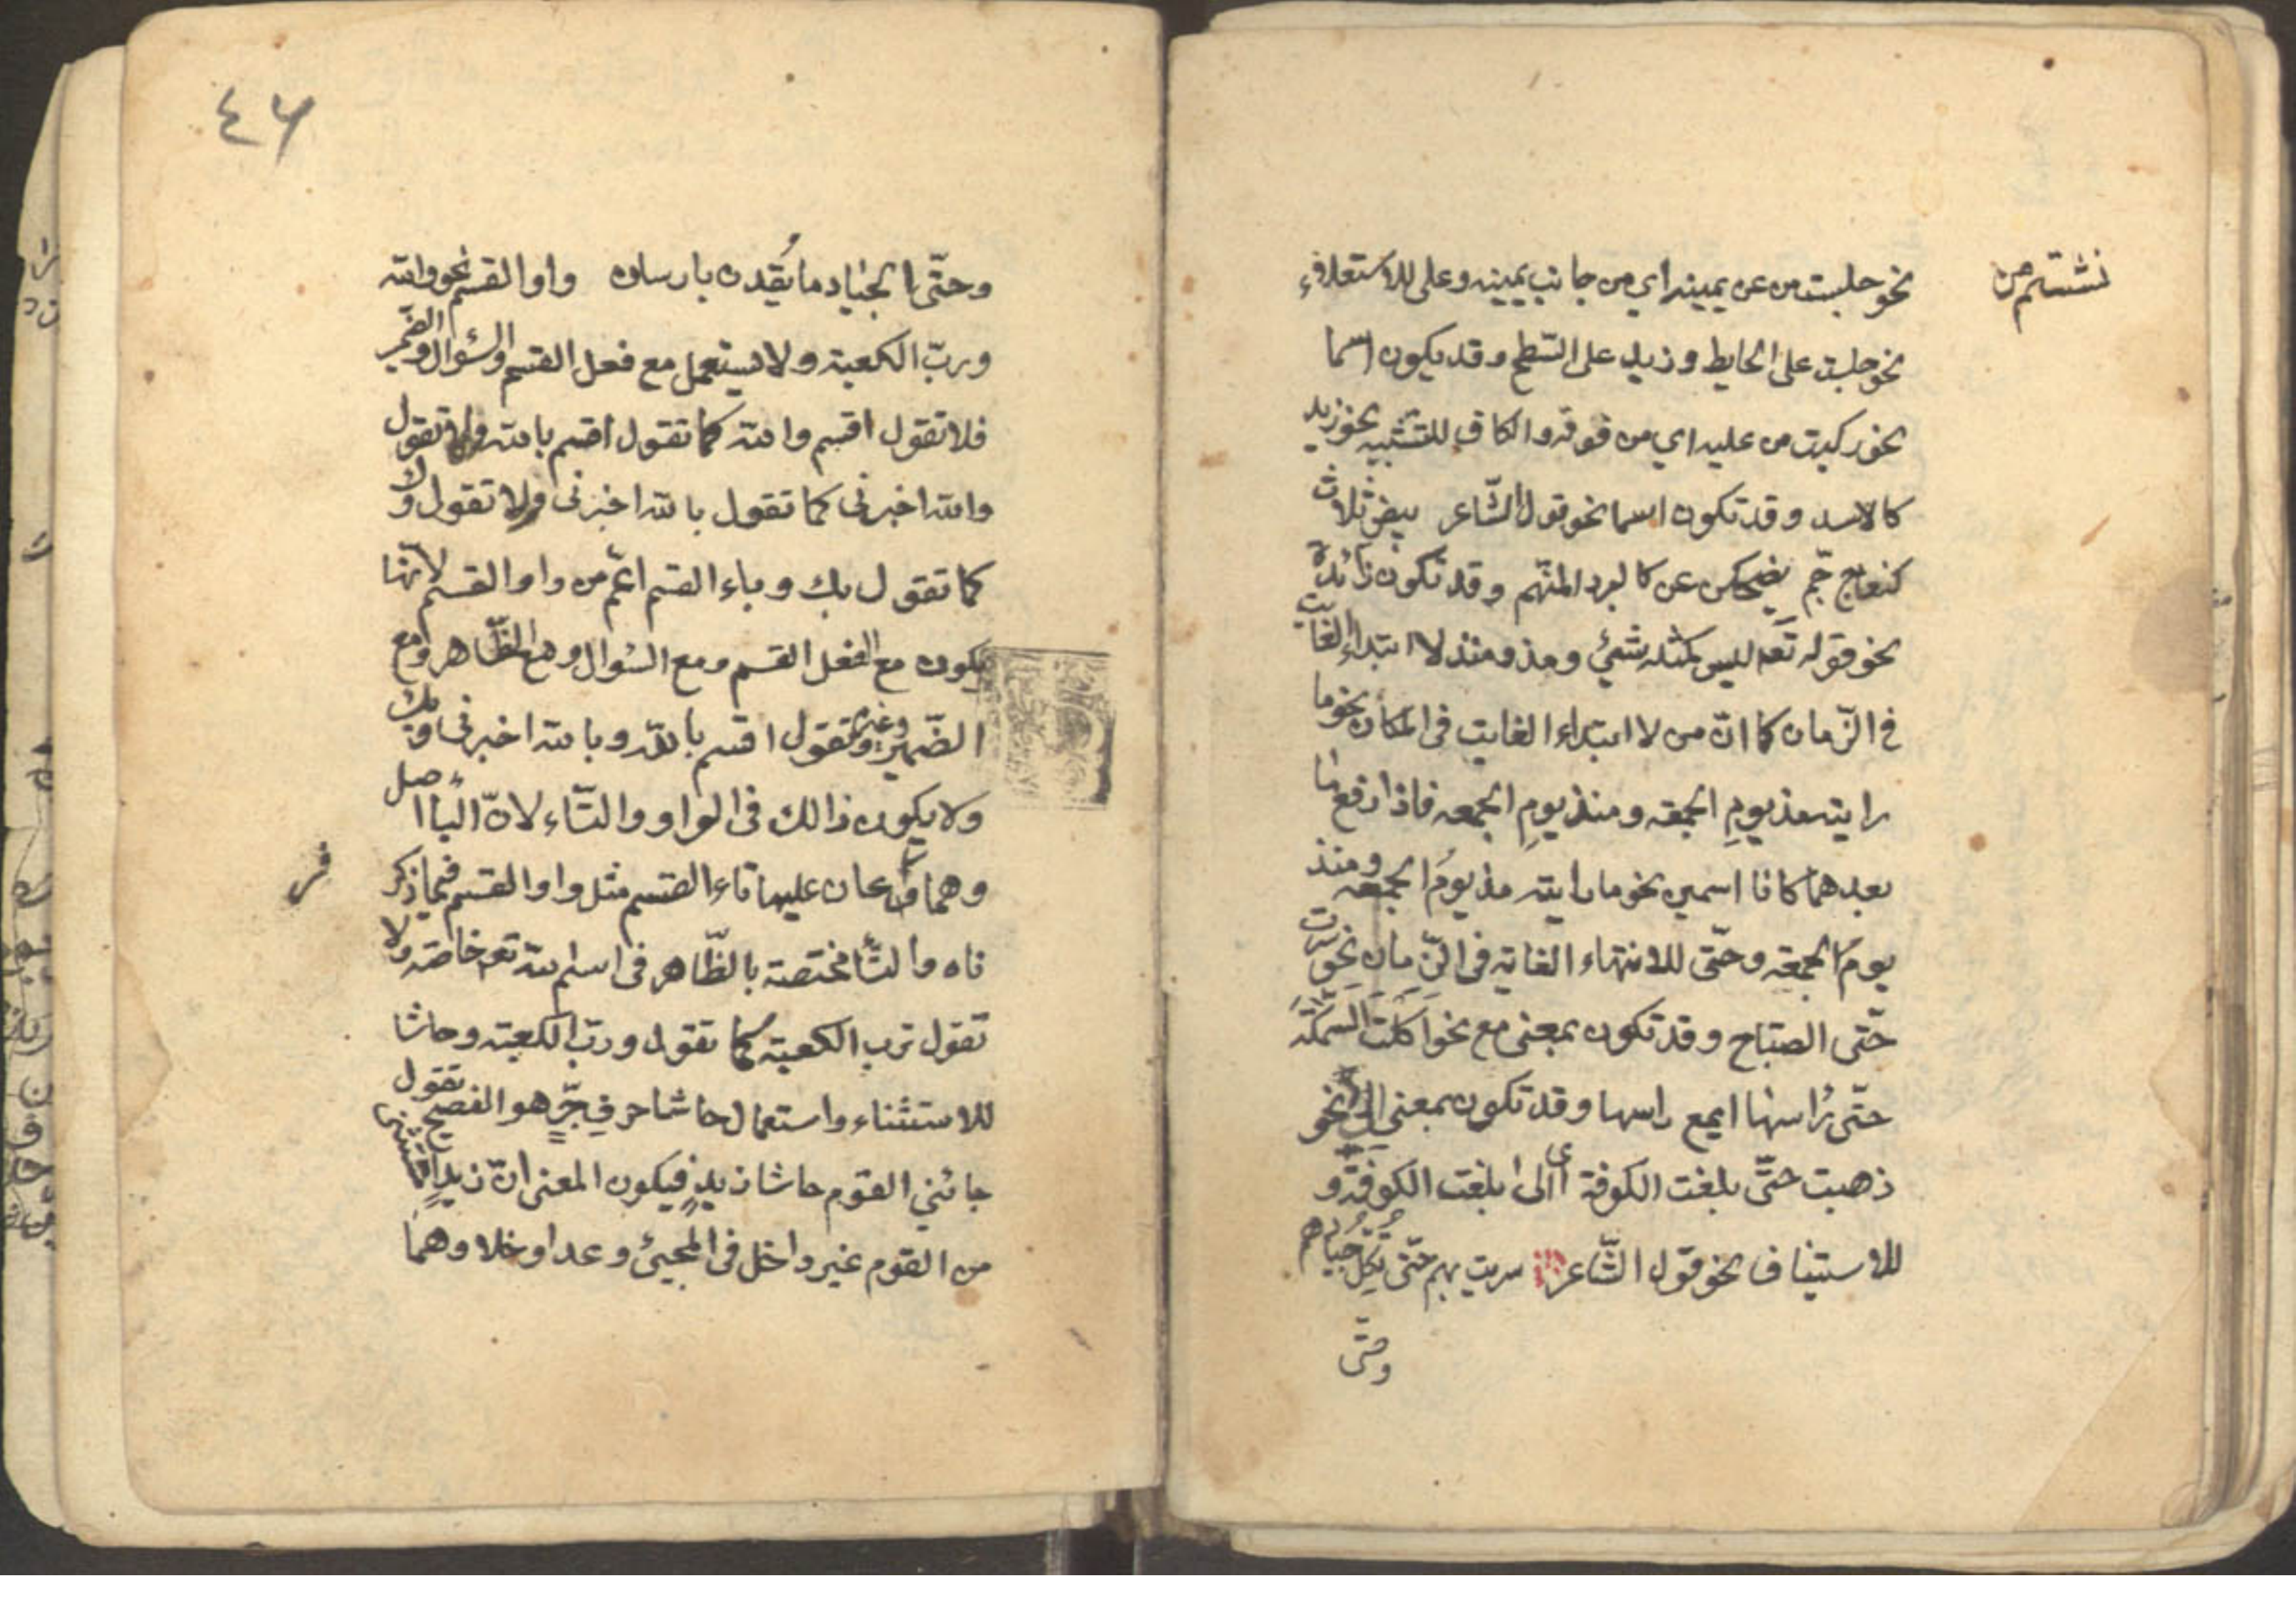 نشستم من
نحو جلست من عن يمينه اي من جانب يمينه وعلى للاستعلاء
نحو جلست على الحايط و زيد على السّطح و قد يكون اسما
نحو ركبت من عليه اي من فوقه و الكاف للتشبيه نحو زيد
كالاسد و قد تكون اسما نحو قول الشّاعر بيض ثلاث
كنعاج جّم يضحكن عن كالبرد المنهم و قد تكون زائدة
نحو قوله تعه ليس كمثله شئ و مذ و منذ لابتداء الغايت
في الزّمان كما انّ من لابتداء الغايت فى المكان نحو ما
رايته مذ يومِ الجمعه و منذ يومِ الجمعه فاذا رفع ما
بعدهما كانا اسمين نحو ما رايته مذ يومُ الجمعه و منذ
يوم الجمعه و حتّى للانتهاء الغايه فى الزّمان نحو سرت
حتّى الصباح و قد تكون بمعنى مع نحو اكلت السّمكة
حتّى راسها اى مع راسها و قد تكون بمعنى الى نحو
ذهبت حتّى بلغت الكوفة اى الى بلغت الكوفة و
للاستيناف نحو قول الشّاعر سريت بهم حتّى تكلّ جيادهم
وحتّى
٤٦
وحتّى الجياد ما يُقدن بارسان واو القسم نحو والله
وربّ الكعبة ولا يستعمل مع فعل القسم والسئوال والضمير
فلا تقول اقسم والله كما تقول اقسم بالله ولا تقول
والله اخبرنى كما تقول بالله اخبرنى ولا تقول وك
كما تقول بك و باء القسم اعّم من واو القسم لانّها
يكون مع الفعل القسم و مع السئوال و مع الظّاهر و مع
الضّمير وغيره تقول اقسم بالله و بالله اخبرنى و بك
ولا يكون ذالك فى الواو و التّاء لانّ الباء اصل
وهما فرعان عليها تاء القسم مثل واو القسم فيما ذكر
فر
ناه والتّا مختصة بالظّاهر فى اسم الله تعه خاصة ولا
تقول تربّ الكعبة كما تقول و ربّ الكعبة و حاشا
للاستثناء و استعمال حاشا حرف جّر هو الفصيح تقول
جائني القوم حاشا زيدٍ فيكون المعنى انّ زيدا مستثنى
من القوم غير داخل فى المجيئ و عدا و خلا و هما